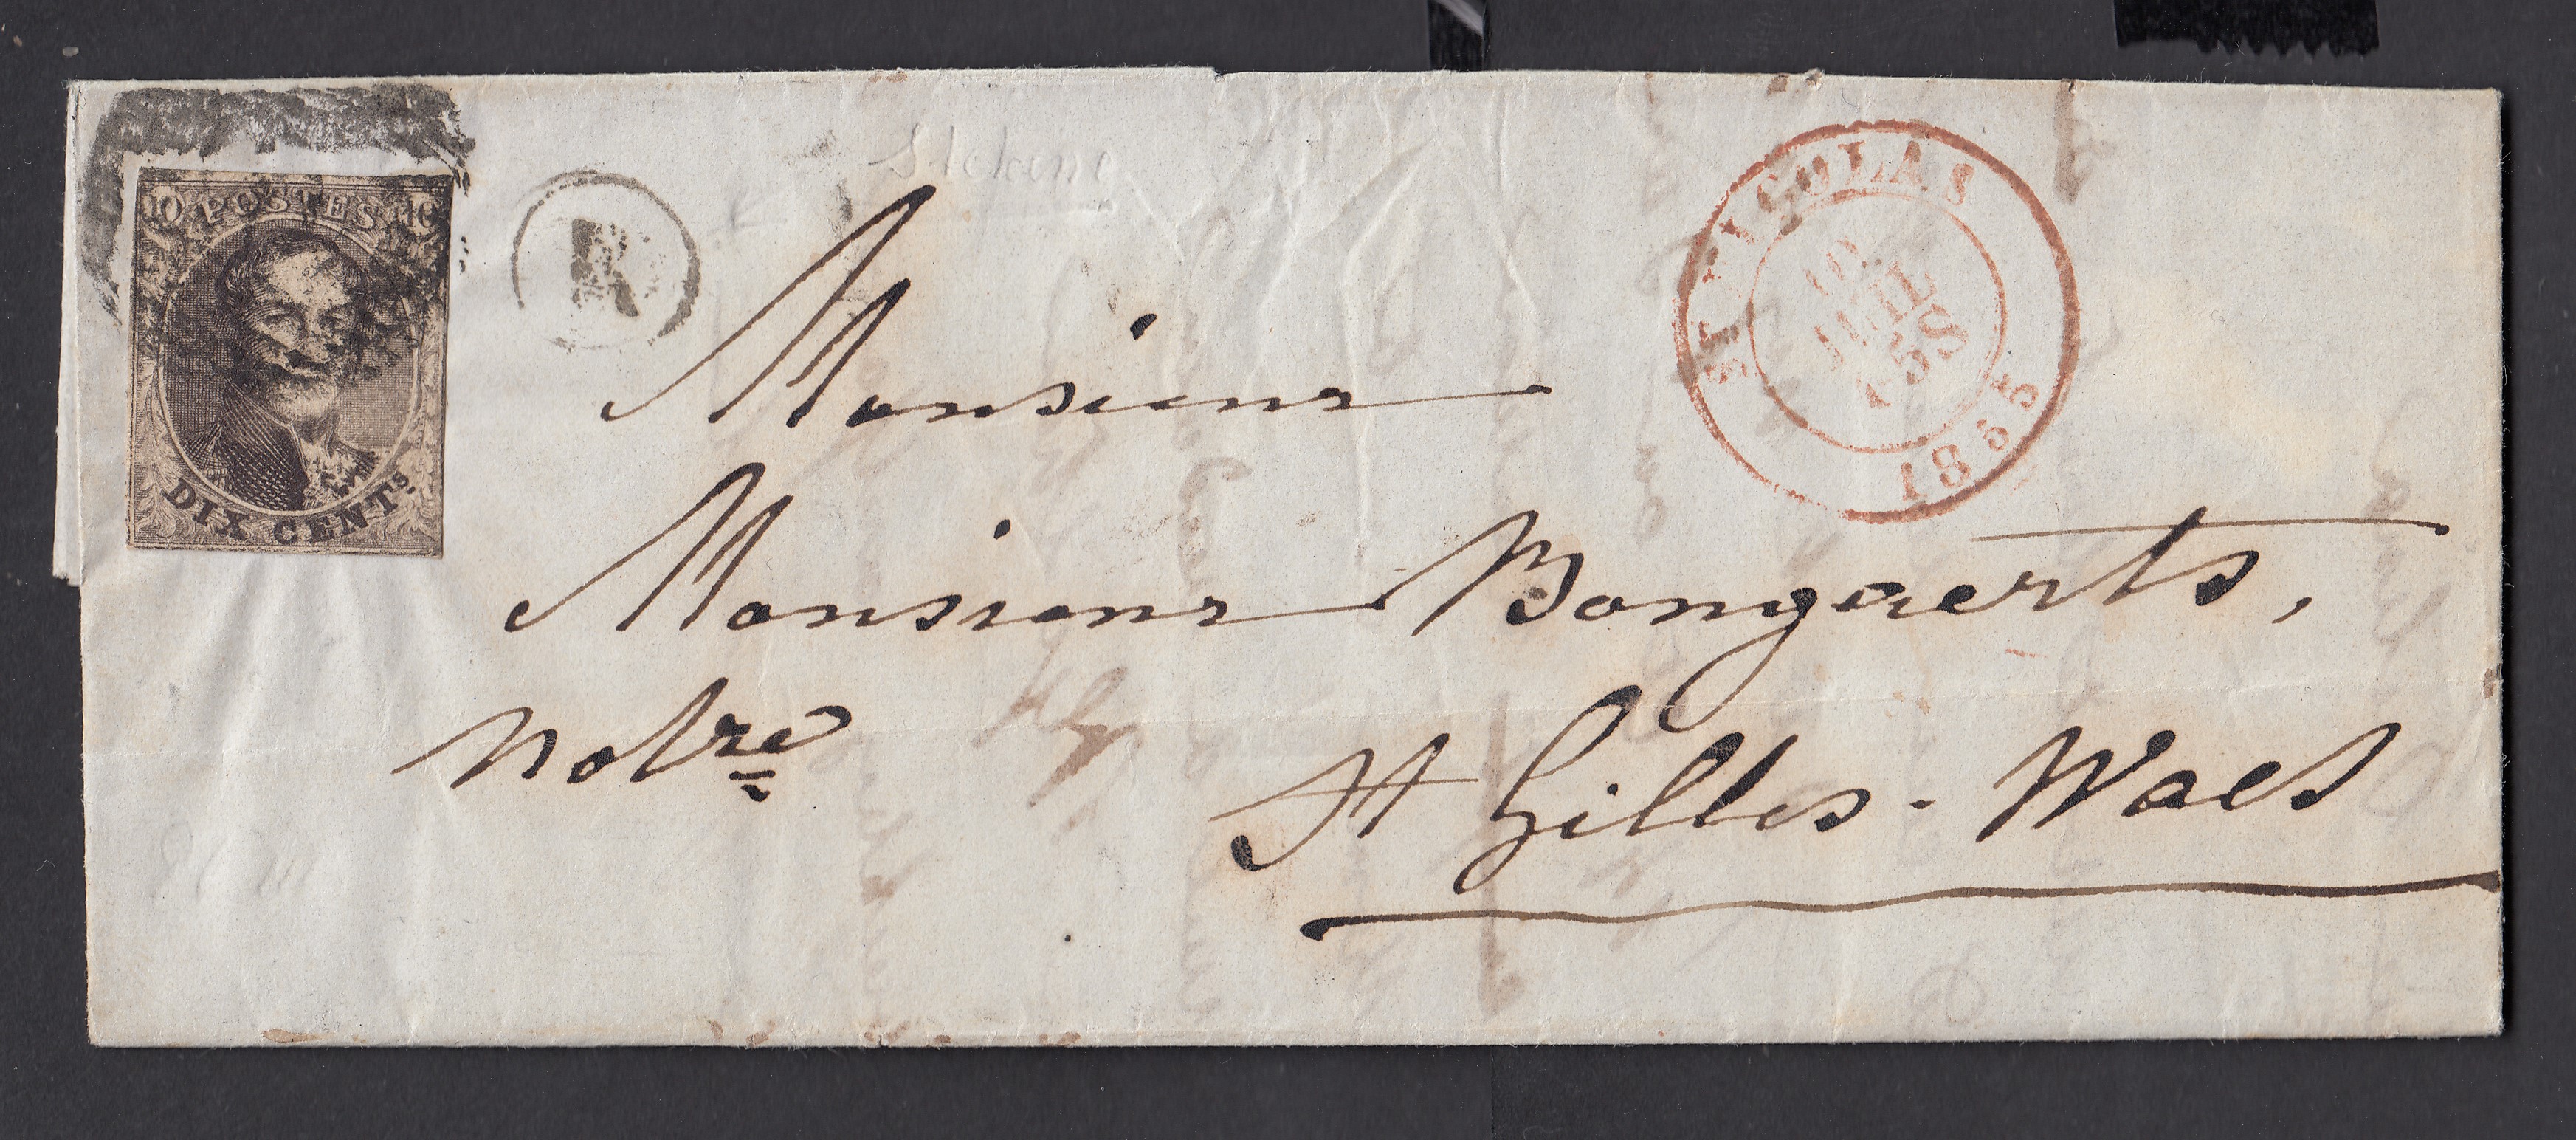 10 POSTES 10
DIX CENTS.
R
Stekene
ST NICOLAS
10
JUIL
4-5S
1855
Monsieur
Monsieur Bongaerts,
Notre
St Gilles-Waes